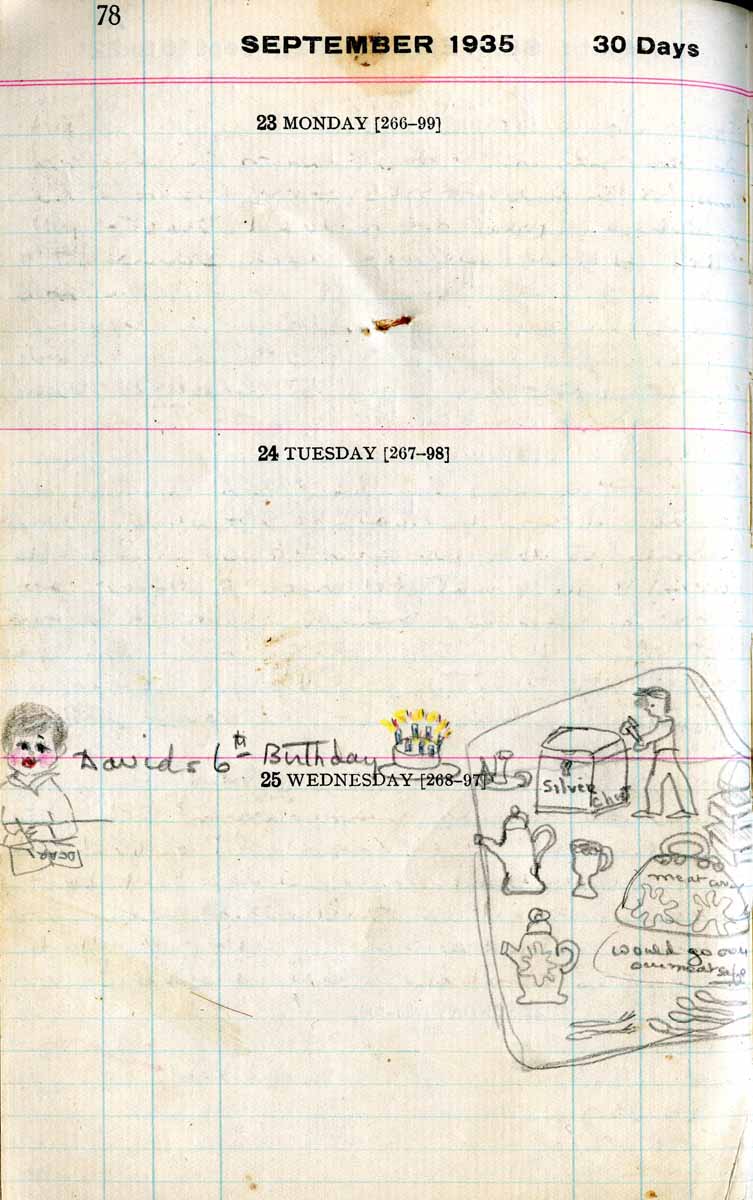 78
SEPTEMBER 1935 30 Days
23 MONDAY [266–99]
24 TUESDAY [267–98]
Davids 6th Birthday
25 WEDNESDAY [268–97]
Silver
Chest
meat
would go over
our meat safe